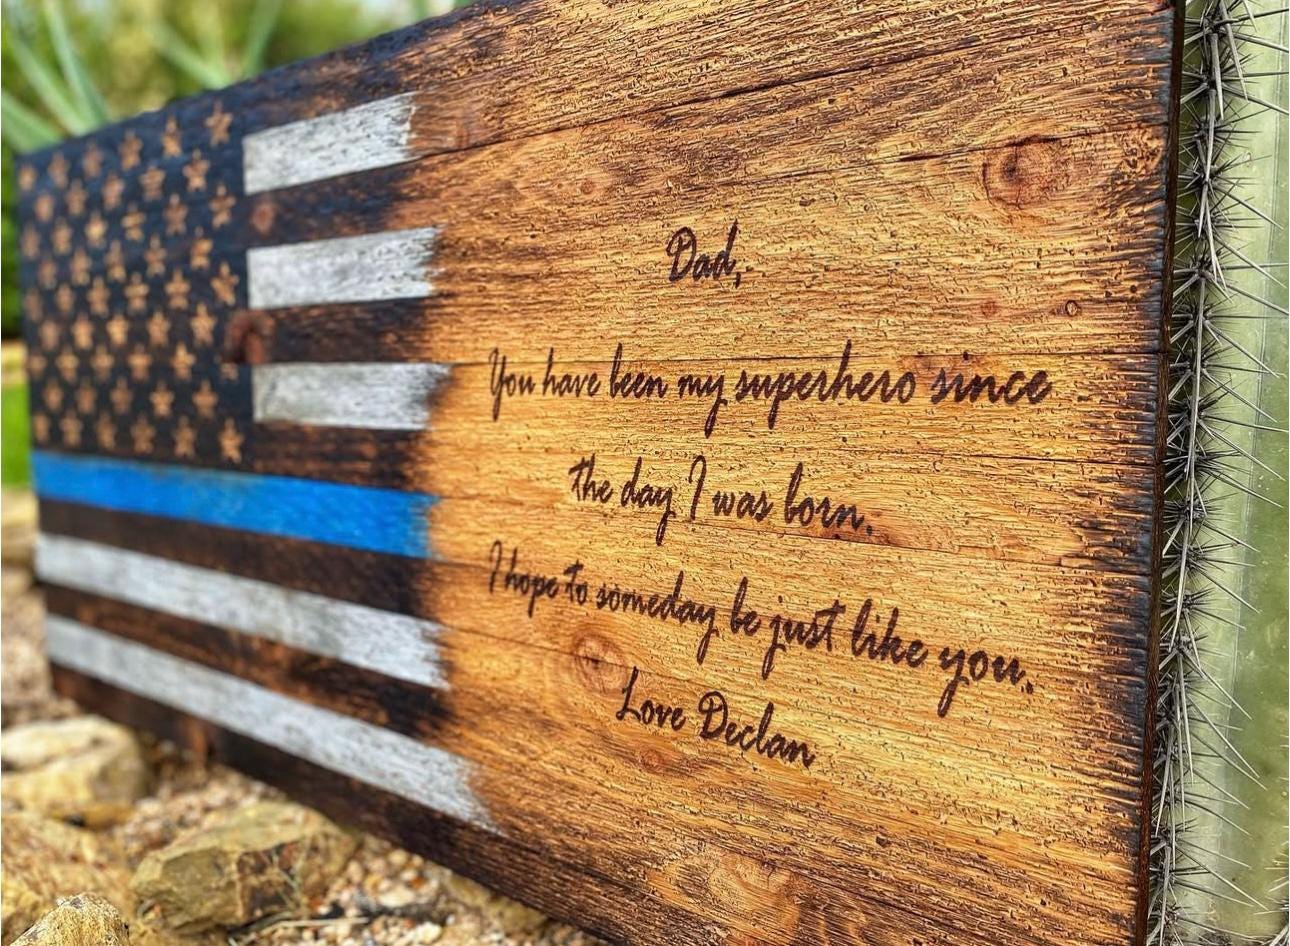 Dad,
You have been my superhero since
the day I was born.
I hope to someday be just like you.
Love Declan